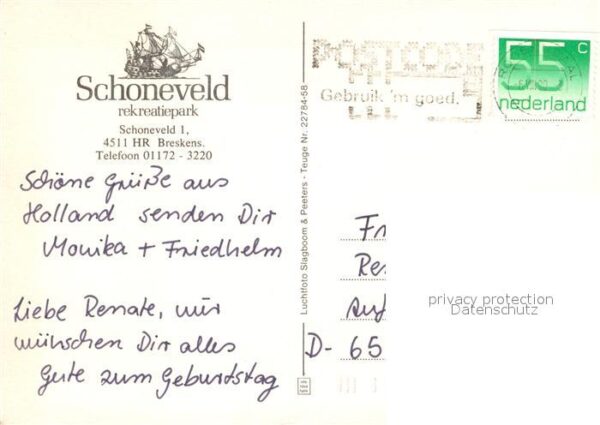 Schoneveld
rekreatiepark
Schoneveld 1,
4511 HR Breskens.
Telefoon 01172 - 3220
Schöne Grüße aus
Holland senden Dir
Monika + Friedhelm
Liebe Renate, wir
wünschen Dir alles
Gute zum Geburtstag
Luchtfoto Slagboom & Peeters - Teuge Nr. 22784-58
POSTCODE
Gebruik 'm goed.
55 c
nederland
Fr
Re
Auf
D- 65
privacy protection
Datenschutz